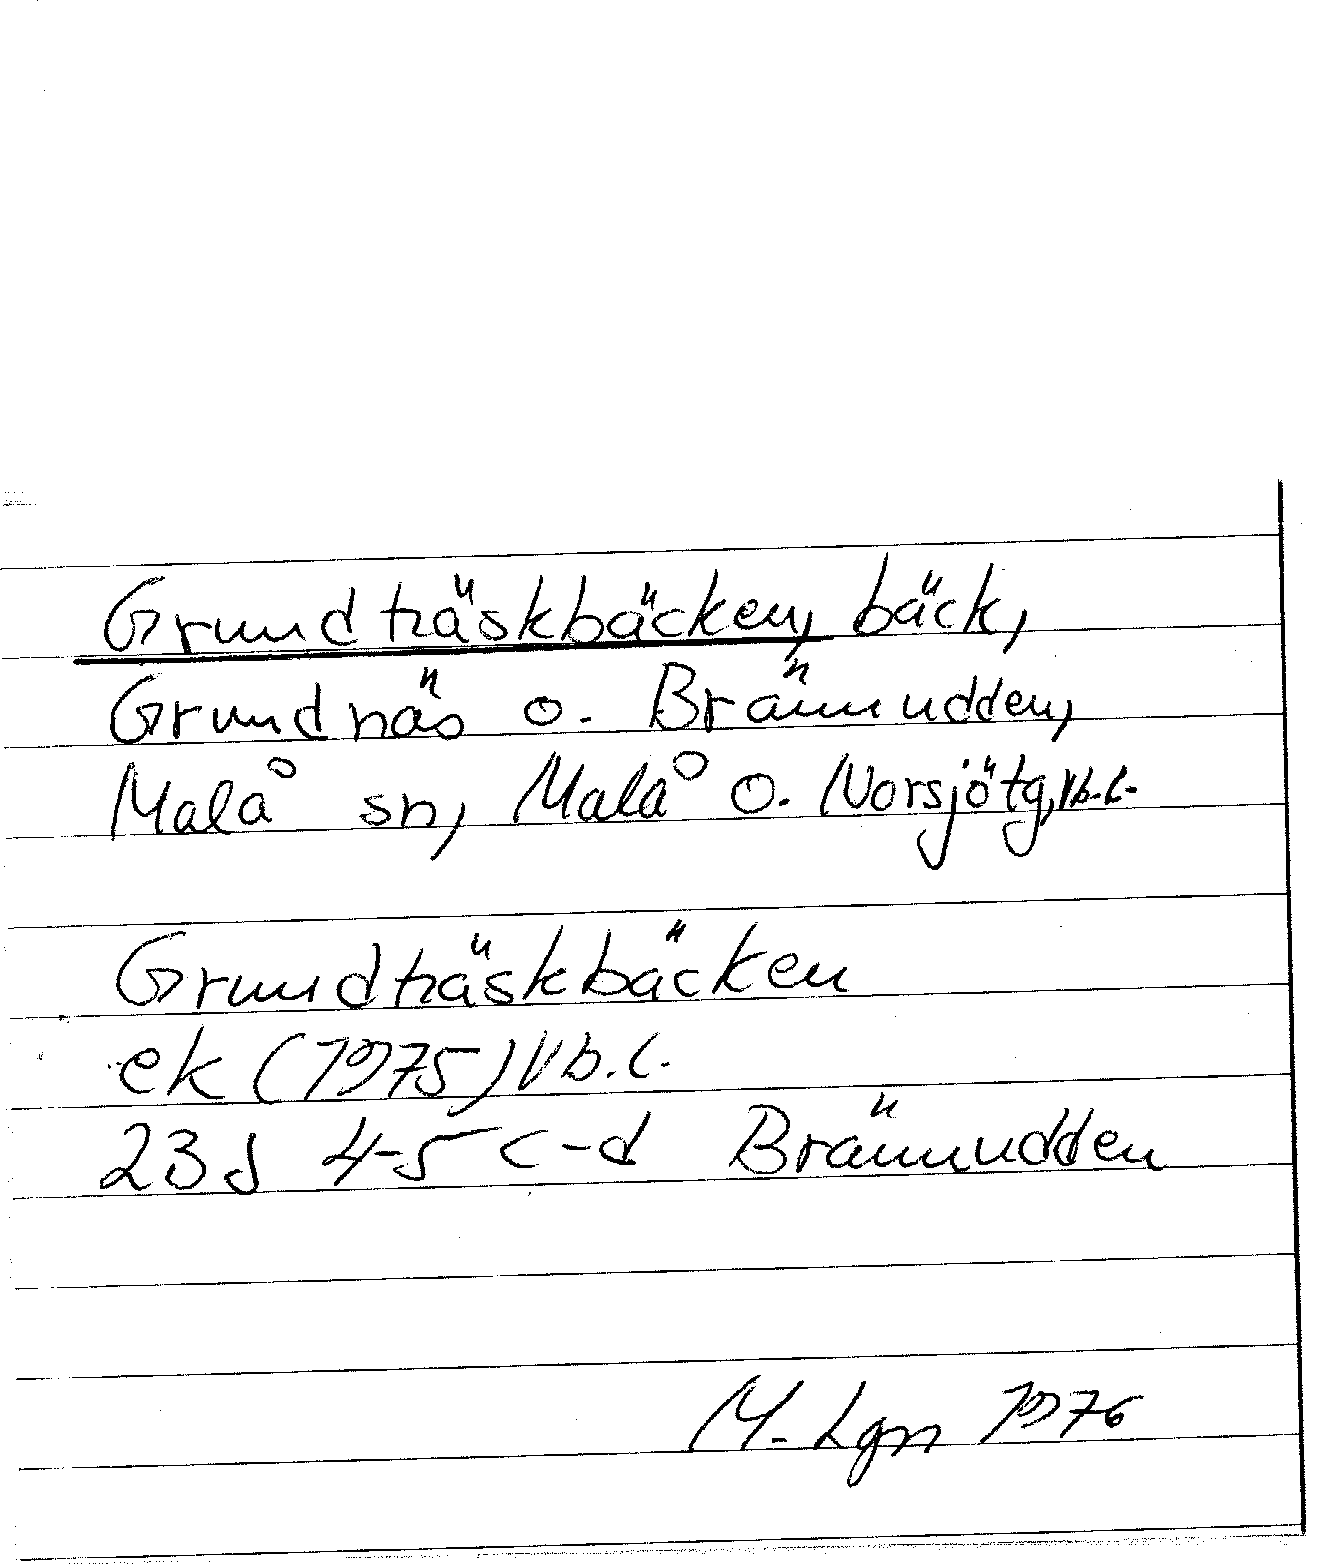 Grundträskbäcken, bäck,
Grundnäs o. Brännudden,
Malå sn, Malå o. Norsjötg, Vb.l.
Grundträskbäcken
ek (1975) Vb.l.
23J 4-5 c-d Brännudden
M. Lgn 1976